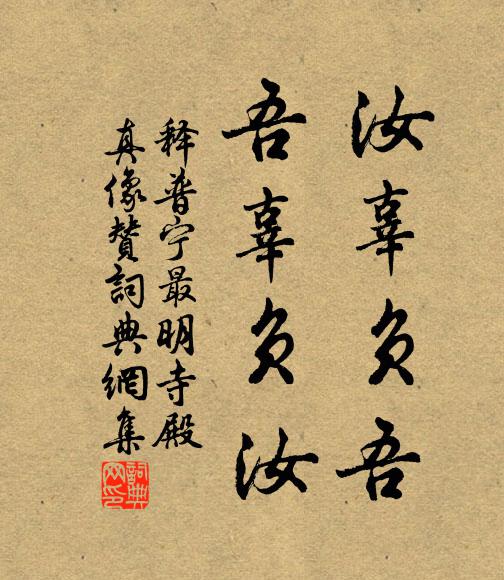 汝辜负吾
吾辜负汝
释普宁最明寺殿
真像赞词典網集
词典
网印